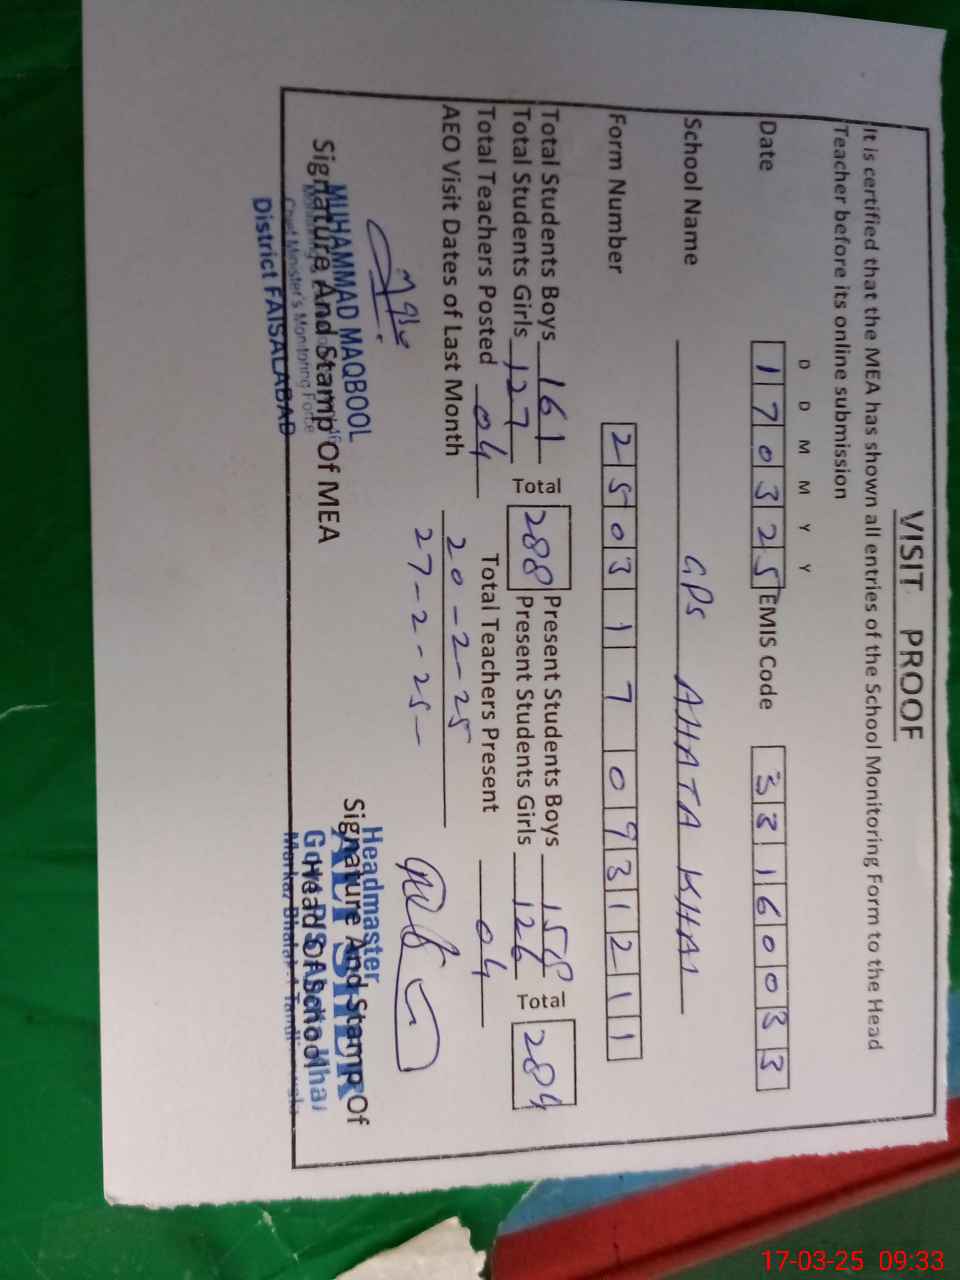 VISIT PROOF
It is certified that the MEA has shown all entries of the School Monitoring Form to the Head
Teacher before its online submission
D D M M Y Y
Date 1 7 0 3 2 5 EMIS Code 3 3 1 6 0 0 3 3
School Name GPS AHATA KHAI
Form Number 2 5 0 3 1 7 0 9 3 1 2 1 1
Total Students Boys 161 Present Students Boys 158
Total Students Girls 127 Total 288 Present Students Girls 126 Total 284
Total Teachers Posted 04 Total Teachers Present 04
AEO Visit Dates of Last Month 20-2-25
27-2-25-
MUHAMMAD MAQBOOL
Chief Minister's Monitoring Force
District FAISALABAD
Signature And Stamp Of MEA
Headmaster
Signature And Stamp Of
Head Of School
17-03-25 09:33